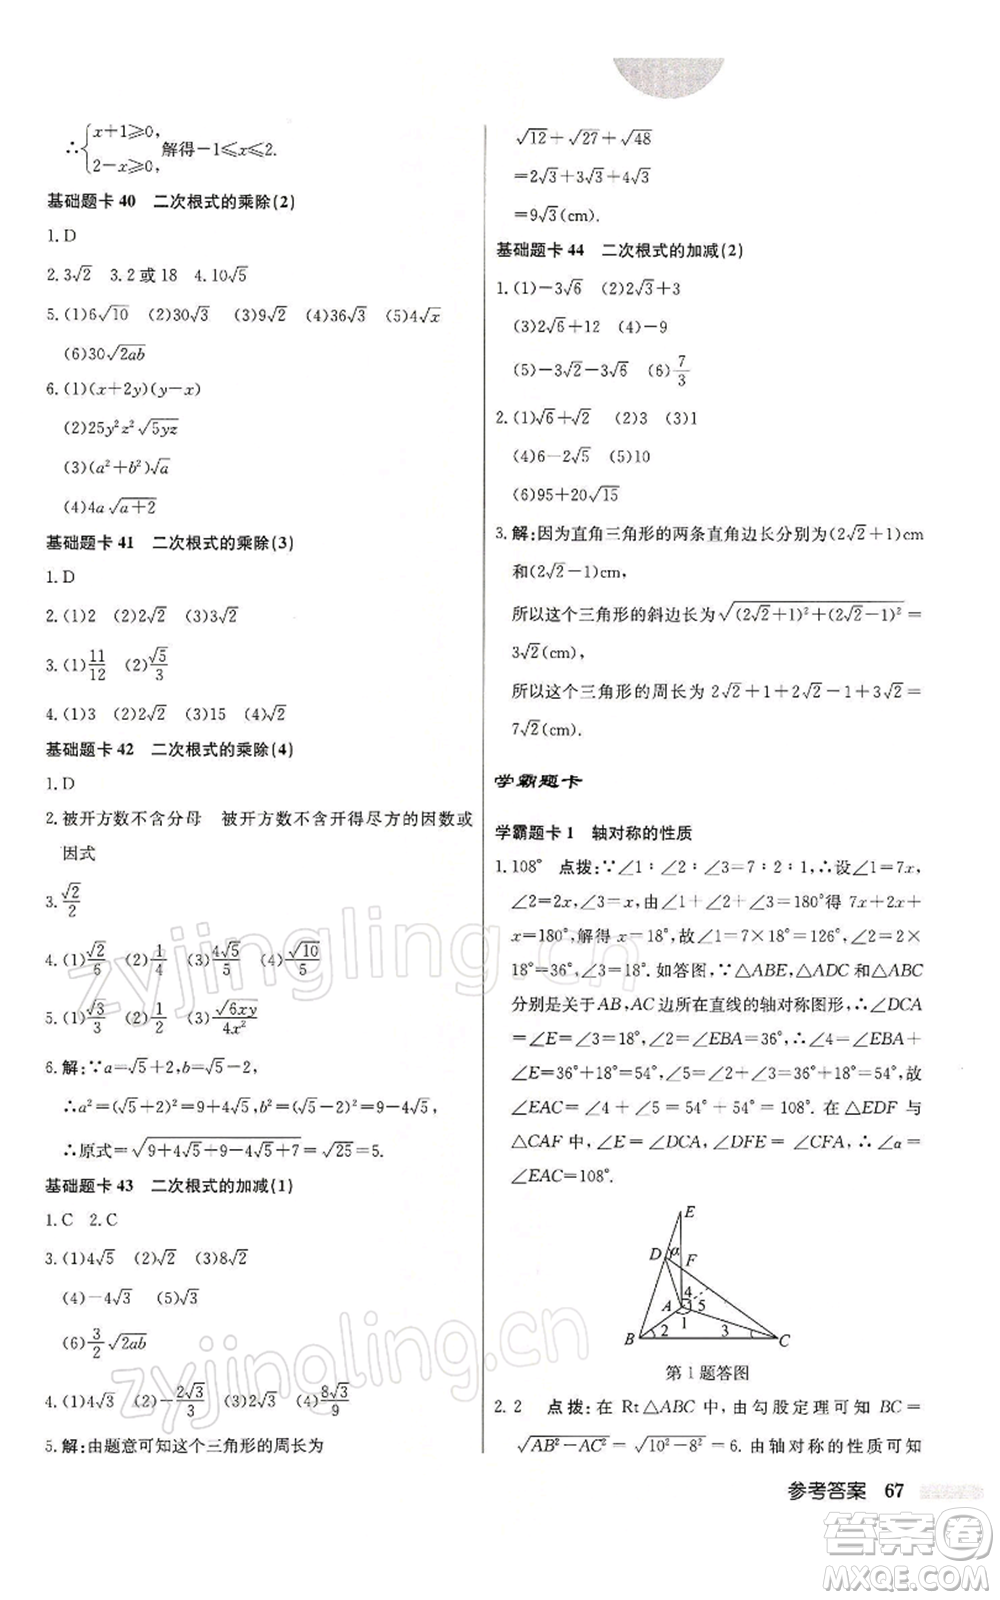 ∴{x+1⩾0, 2-x⩾0, 解得-1⩽x⩽2.
基础题卡 40 二次根式的乘除(2)
1. D
2. 3√2 3. 2 或 18 4. 10√5
5. (1)6√10 (2)30√3 (3)9√2 (4)36√3 (5)4√x
(6)30√2ab
6. (1)(x+2y)(y-x)
(2)25y²z²√5yz
(3)(a²+b²)√a
(4)4a√a+2
基础题卡 41 二次根式的乘除(3)
1. D
2. (1)2 (2)2√2 (3)√2
3. (1)11/12 (2)√5/3
4. (1)3 (2)2√2 (3)15 (4)√2
基础题卡 42 二次根式的乘除(4)
1. D
2. 被开方数不含分母 被开方数不含开得尽方的因数或
因式
3. √2/2
4. (1)√2/6 (2)1/4 (3)4√5/5 (4)√10/5
5. (1)√3/3 (2)1/2 (3)√6xy/4x²
6. 解:∵a=√5+2,b=√5-2,
∴a²=(√5+2)²=9+4√5,b²=(√5-2)²=9-4√5,
∴原式=√9+4√5+9-4√5+7=√25=5.
基础题卡 43 二次根式的加减(1)
1. C 2. C
3. (1)4√5 (2)√2 (3)8√2
(4)-4√3 (5)√3
(6)3/2√2ab
4. (1)4√3 (2)-2√3/3 (3)2√3 (4)8√3/9
5. 解:由题意可知这个三角形的周长为
√12+√27+√48
=2√3+3√3+4√3
=9√3(cm).
基础题卡 44 二次根式的加减(2)
1. (1)-3√6 (2)2√3+3
(3)2√6+12 (4)-9
(5)-3√2-3√6 (6)7/3
2. (1)√6+√2 (2)3 (3)1
(4)6-2√5 (5)10
(6)95+20√15
3. 解:因为直角三角形的两条直角边长分别为(2√2+1)cm
和(2√2-1)cm,
所以这个三角形的斜边长为√(2√2+1)²+(2√2-1)²=
3√2(cm),
所以这个三角形的周长为 2√2+1+2√2-1+3√2=
7√2(cm).
学霸题卡
学霸题卡 1 轴对称的性质
1. 108° 点拨:∵∠1∶∠2∶∠3=7∶2∶1,∴设∠1=7x,
∠2=2x,∠3=x,由∠1+∠2+∠3=180°得 7x+2x+
x=180°,解得 x=18°,故∠1=7×18°=126°,∠2=2×
18°=36°,∠3=18°. 如答图,∵△ABE,△ADC 和△ABC
分别是关于AB,AC边所在直线的轴对称图形,∴∠DCA
=∠E=∠3=18°,∠2=∠EBA=36°,∴∠4=∠EBA+
∠E=36°+18°=54°,∠5=∠2+∠3=36°+18°=54°,故
∠EAC=∠4+∠5=54°+54°=108°. 在△EDF 与
△CAF 中,∠E=∠DCA,∠DFE=∠CFA,∴∠α=
∠EAC=108°.
E
D α
F
4
A 5
1
B 2 3 C
第1题答图
2. 2 点拨:在 Rt△ABC 中,由勾股定理可知 BC=
√AB²-AC²=√10²-8²=6. 由轴对称的性质可知
参考答案 67
zyjingling.cn
zyjingling.cn
答案圈
MXQE.COM